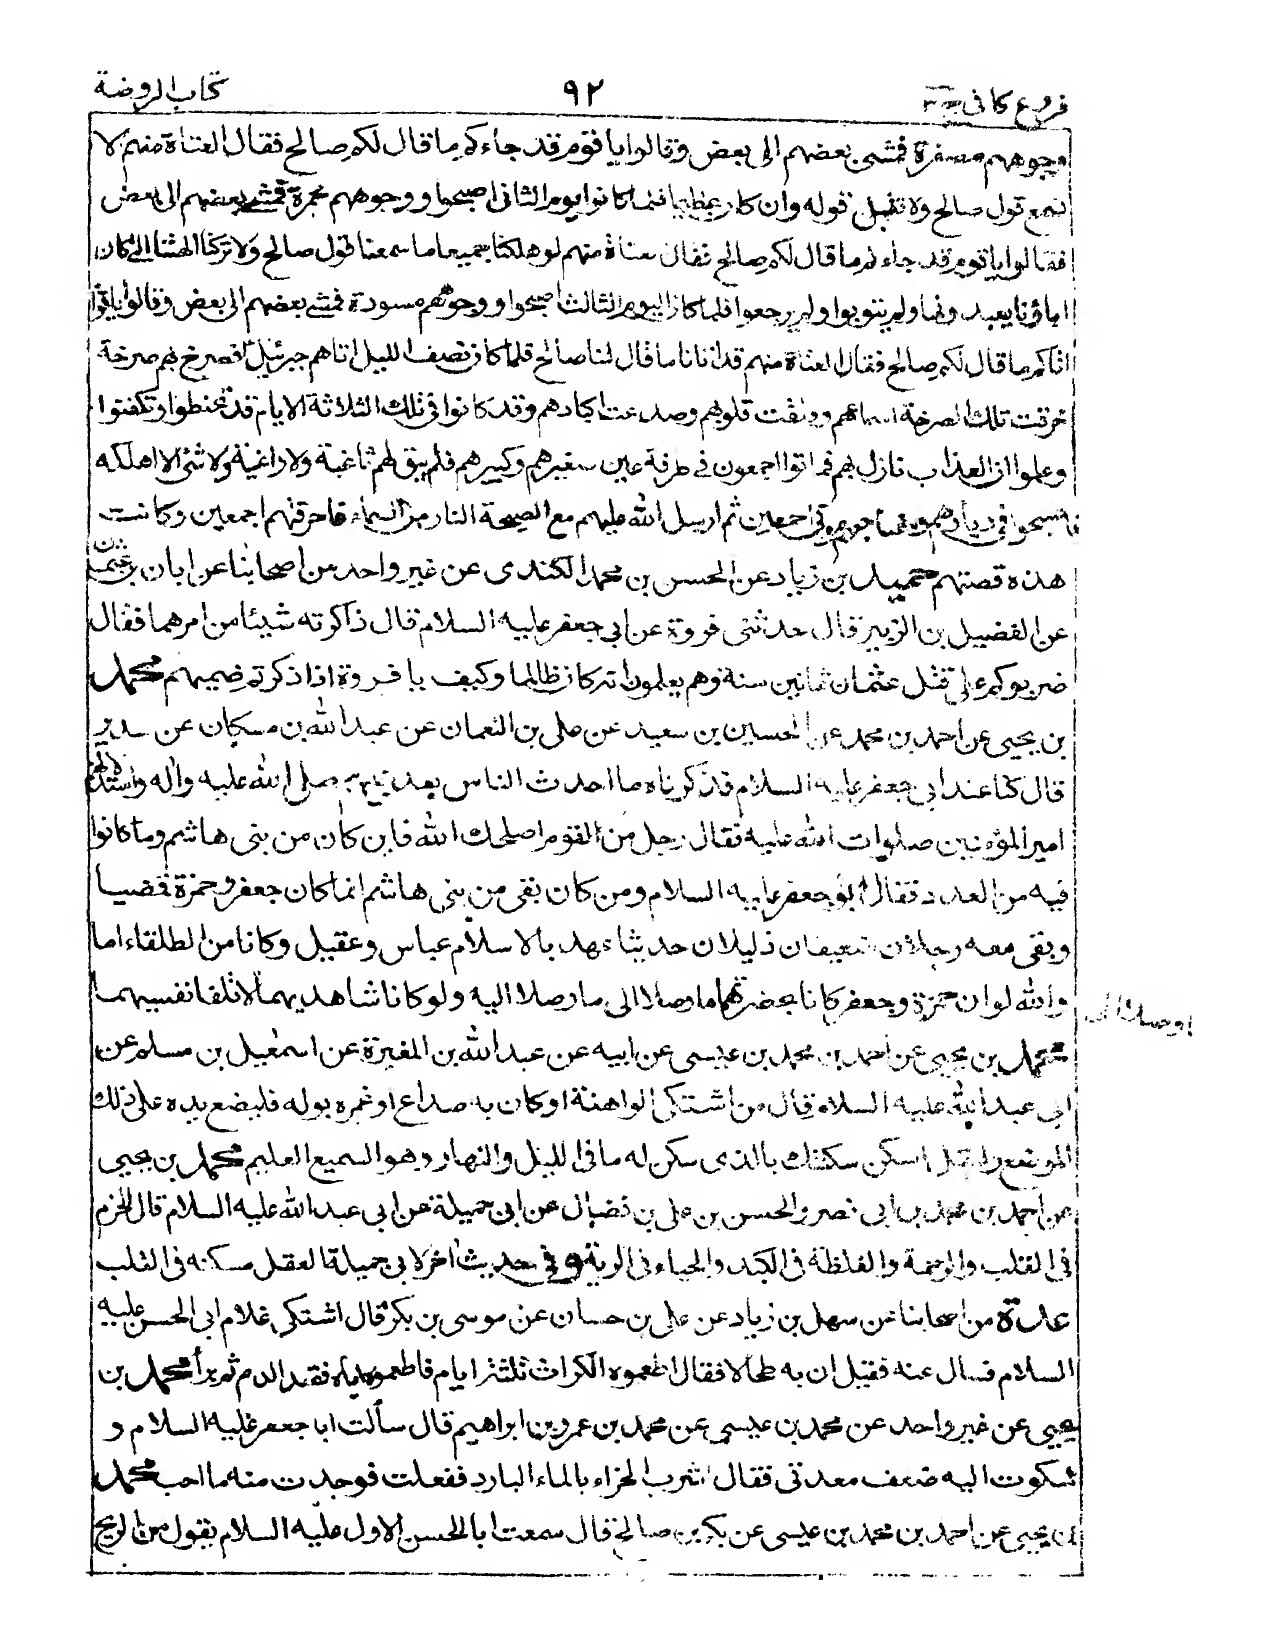 فروع كافى ج۳
۹۲
كتاب الروضة
وجوههم مصفرة فمشى بعضهم الى بعض وقالوا يا قوم قد جاءكم ما قال لكم صالح فقال العتاة منهم لا
نسمع قول صالح ولا نقبل قوله وان كان عظيما فلما كانوا يوم الثانى اصبحوا ووجوههم محمرة فمشى بعضهم الى بعض
فقالوا يا قوم قد جاءكم ما قال لكم صالح فقال العتاة منهم لو هلكنا جميعا ما سمعنا قول صالح ولا تركنا الهتنا التى كان
اباؤنا يعبدونها ولم يتوبوا ولم يرجعوا فلما كان اليوم الثالث اصبحوا ووجوههم مسودة فمشى بعضهم الى بعض وقالوا يا قوم
اتاكم ما قال لكم صالح فقال العتاة منهم قد اتانا ما قال لنا صالح فلما كان نصف الليل اتاهم جبرئيل فصرخ بهم صرخة
خرقت تلك الصرخة اسماعهم وفلقت قلوبهم وصدعت اكبادهم وقد كانوا فى تلك الثلاثة الايام قد تحنطوا وتكفنوا
وعلموا ان العذاب نازل بهم فماتوا اجمعون فى طرفة عين صغيرهم وكبيرهم فلم يبق لهم ثاغية ولا راغية ولا شئ الا اهلكه
فاصبحوا فى ديارهم ومضاجعهم موتى اجمعين ثم ارسل الله عليهم مع الصيحة النار من السماء فاحرقتهم اجمعين وكانت
هذه قصتهم حميد بن زياد عن الحسن بن محمد الكندى عن غير واحد من اصحابنا عن ابان بن عثمن
عن الفضيل بن الزبير قال حدثنى فروة عن ابى جعفر عليه السلام قال ذاكرته شيئا من امرهما فقال
ضربوكم على قتل عثمان ثمانين سنة وهم يعلمون انه كان ظالما وكيف يا فروة اذا ذكرتم صنميهم محمد
بن يحيى عن احمد بن محمد عن الحسين بن سعيد عن على بن النعمان عن عبدالله بن مسكان عن سدير
قال كنا عند ابى جعفر عليه السلام فذكرنا ما احدث الناس بعد نبيهم صلى الله عليه واله واستذلالهم
امير المؤمنين صلوات الله عليه فقال رجل من القوم اصلحك الله فاين كان من بنى هاشم وما كانوا
فيه من العدد فقال ابو جعفر عليه السلام ومن كان بقى من بنى هاشم انما كان جعفر وحمزة فمضيا
وبقى معه رجلان ضعيفان ذليلان حديثا عهد بالاسلام عباس وعقيل وكانا من الطلقاء اما
والله لو ان حمزة وجعفر كانا بحضرتهما ما وصلا الى ما وصلا اليه ولو كانا شاهديهما لاتلفا نفسيهما
محمد بن يحيى عن احمد بن محمد بن عيسى عن ابيه عن عبد الله بن المغيرة عن اسمعيل بن مسلم عن
ابى عبد الله عليه السلام قال من اشتكى الواهنة او كان به صداع او غمره بوله فليضع يده على ذلك
الموضع وليقل اسكن سكنتك بالذى سكن له ما فى الليل والنهار وهو السميع العليم محمد بن يحيى
عن احمد بن محمد بن ابى نصر والحسن بن على بن فضال عن ابى جميلة عن ابى عبد الله عليه السلام قال الحزم
فى القلب والرحمة والغلظة فى الكبد والحياء فى الرية وفى حديث اخر لابى جميلة العقل مسكنه فى القلب
عدة من اصحابنا عن سهل بن زياد عن على بن حسان عن موسى بن بكر قال اشتكى غلام ابى الحسن عليه
السلام فسال عنه فقيل ان به طحالا فقال اطعموه الكراث ثلثة ايام فاطعموه اياه فقعد الدم ثم برأ محمد بن
يحيى عن غير واحد عن محمد بن عيسى عن محمد بن عمرو بن ابراهيم قال سألت ابا جعفر عليه السلام و
شكوت اليه ضعف معدتى فقال اشرب الحزاء بالماء البارد ففعلت فوجدت منه ما احب محمد
بن يحيى عن احمد بن محمد بن عيسى عن بكر بن صالح قال سمعت ابا الحسن الاول عليه السلام يقول من الريح